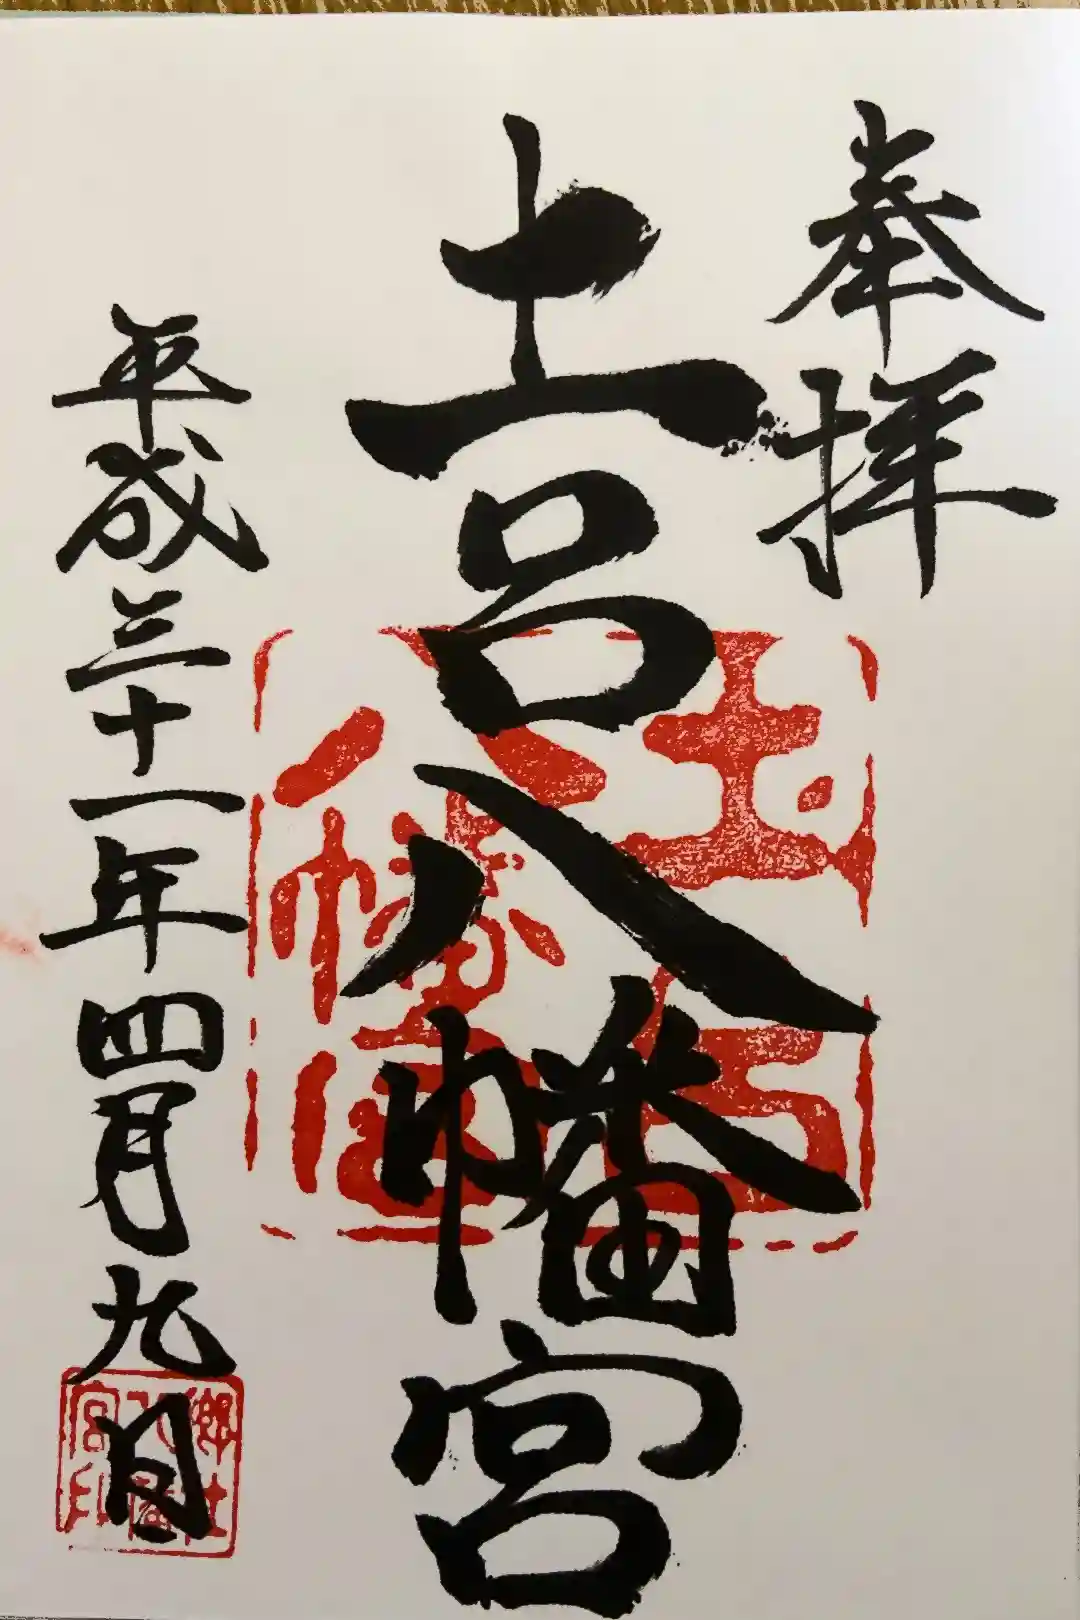 奉拝
土呂八幡宮
平成三十一年四月九日
土呂八幡宮
郷社八幡宮印